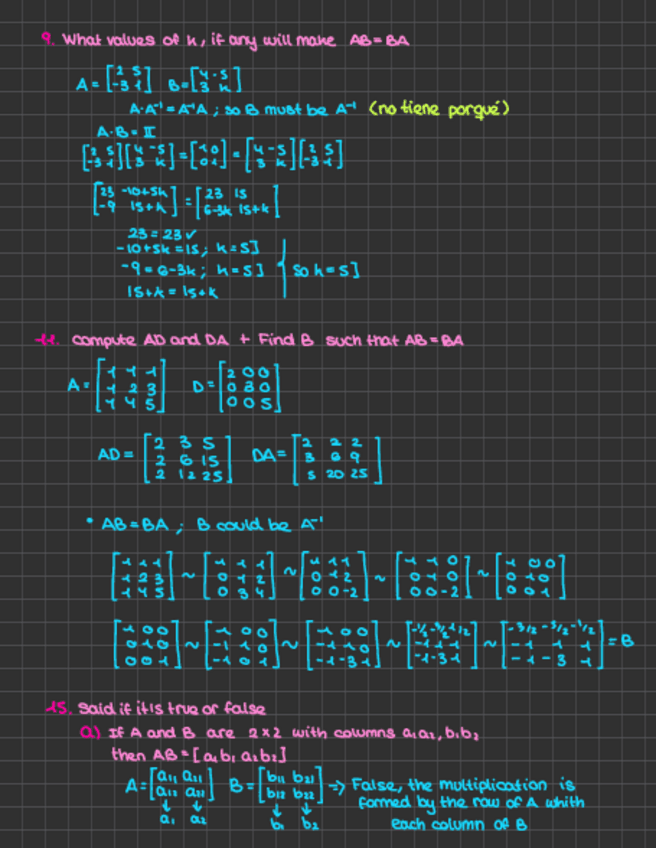 9. What values of k, if any will make AB = BA
A = [2 5; -3 1] B = [4 -5; 3 k]
A·A⁻¹ = A⁻¹A ; so B must be A⁻¹ (no tiene porqué)
A·B = II
[2 5; -3 1][4 -5; 3 k] = [1 0; 0 1] = [4 -5; 3 k][2 5; -3 1]
[23 -10+5k; -9 15+k] = [23 15; 6-3k 15+k]
23 = 23 ✓
-10+5k = 15; k = 5]
-9 = 6-3k; k = 5] so k = 5]
15+k = 15+k
11. Compute AD and DA + Find B such that AB = BA
A = [1 1 1; 1 2 3; 1 4 5] D = [2 0 0; 0 3 0; 0 0 5]
AD = [2 3 5; 2 6 15; 2 12 25] DA = [2 2 2; 3 6 9; 5 20 25]
• AB = BA ; B could be A⁻¹
[1 1 1; 1 2 3; 1 4 5] ~ [1 1 1; 0 1 2; 0 3 4] ~ [1 1 1; 0 1 2; 0 0 -2] ~ [1 1 0; 0 1 0; 0 0 -2] ~ [1 0 0; 0 1 0; 0 0 1]
[1 0 0; 0 1 0; 0 0 1] ~ [1 0 0; -1 1 0; -1 0 1] ~ [1 0 0; -1 1 0; -1 -3 1] ~ ~ = B
15. Said if it is true or false
a) If A and B are 2×2 with columns a₁a₂, b₁b₂
then AB = [a₁b₁ a₂b₂]
A = [a₁₁ a₂₁; a₁₂ a₂₂] B = [b₁₁ b₂₁; b₁₂ b₂₂] => False, the multiplication is
↓ ↓ ↓ ↓ formed by the row of A whith
a₁ a₂ b₁ b₂ each column of B